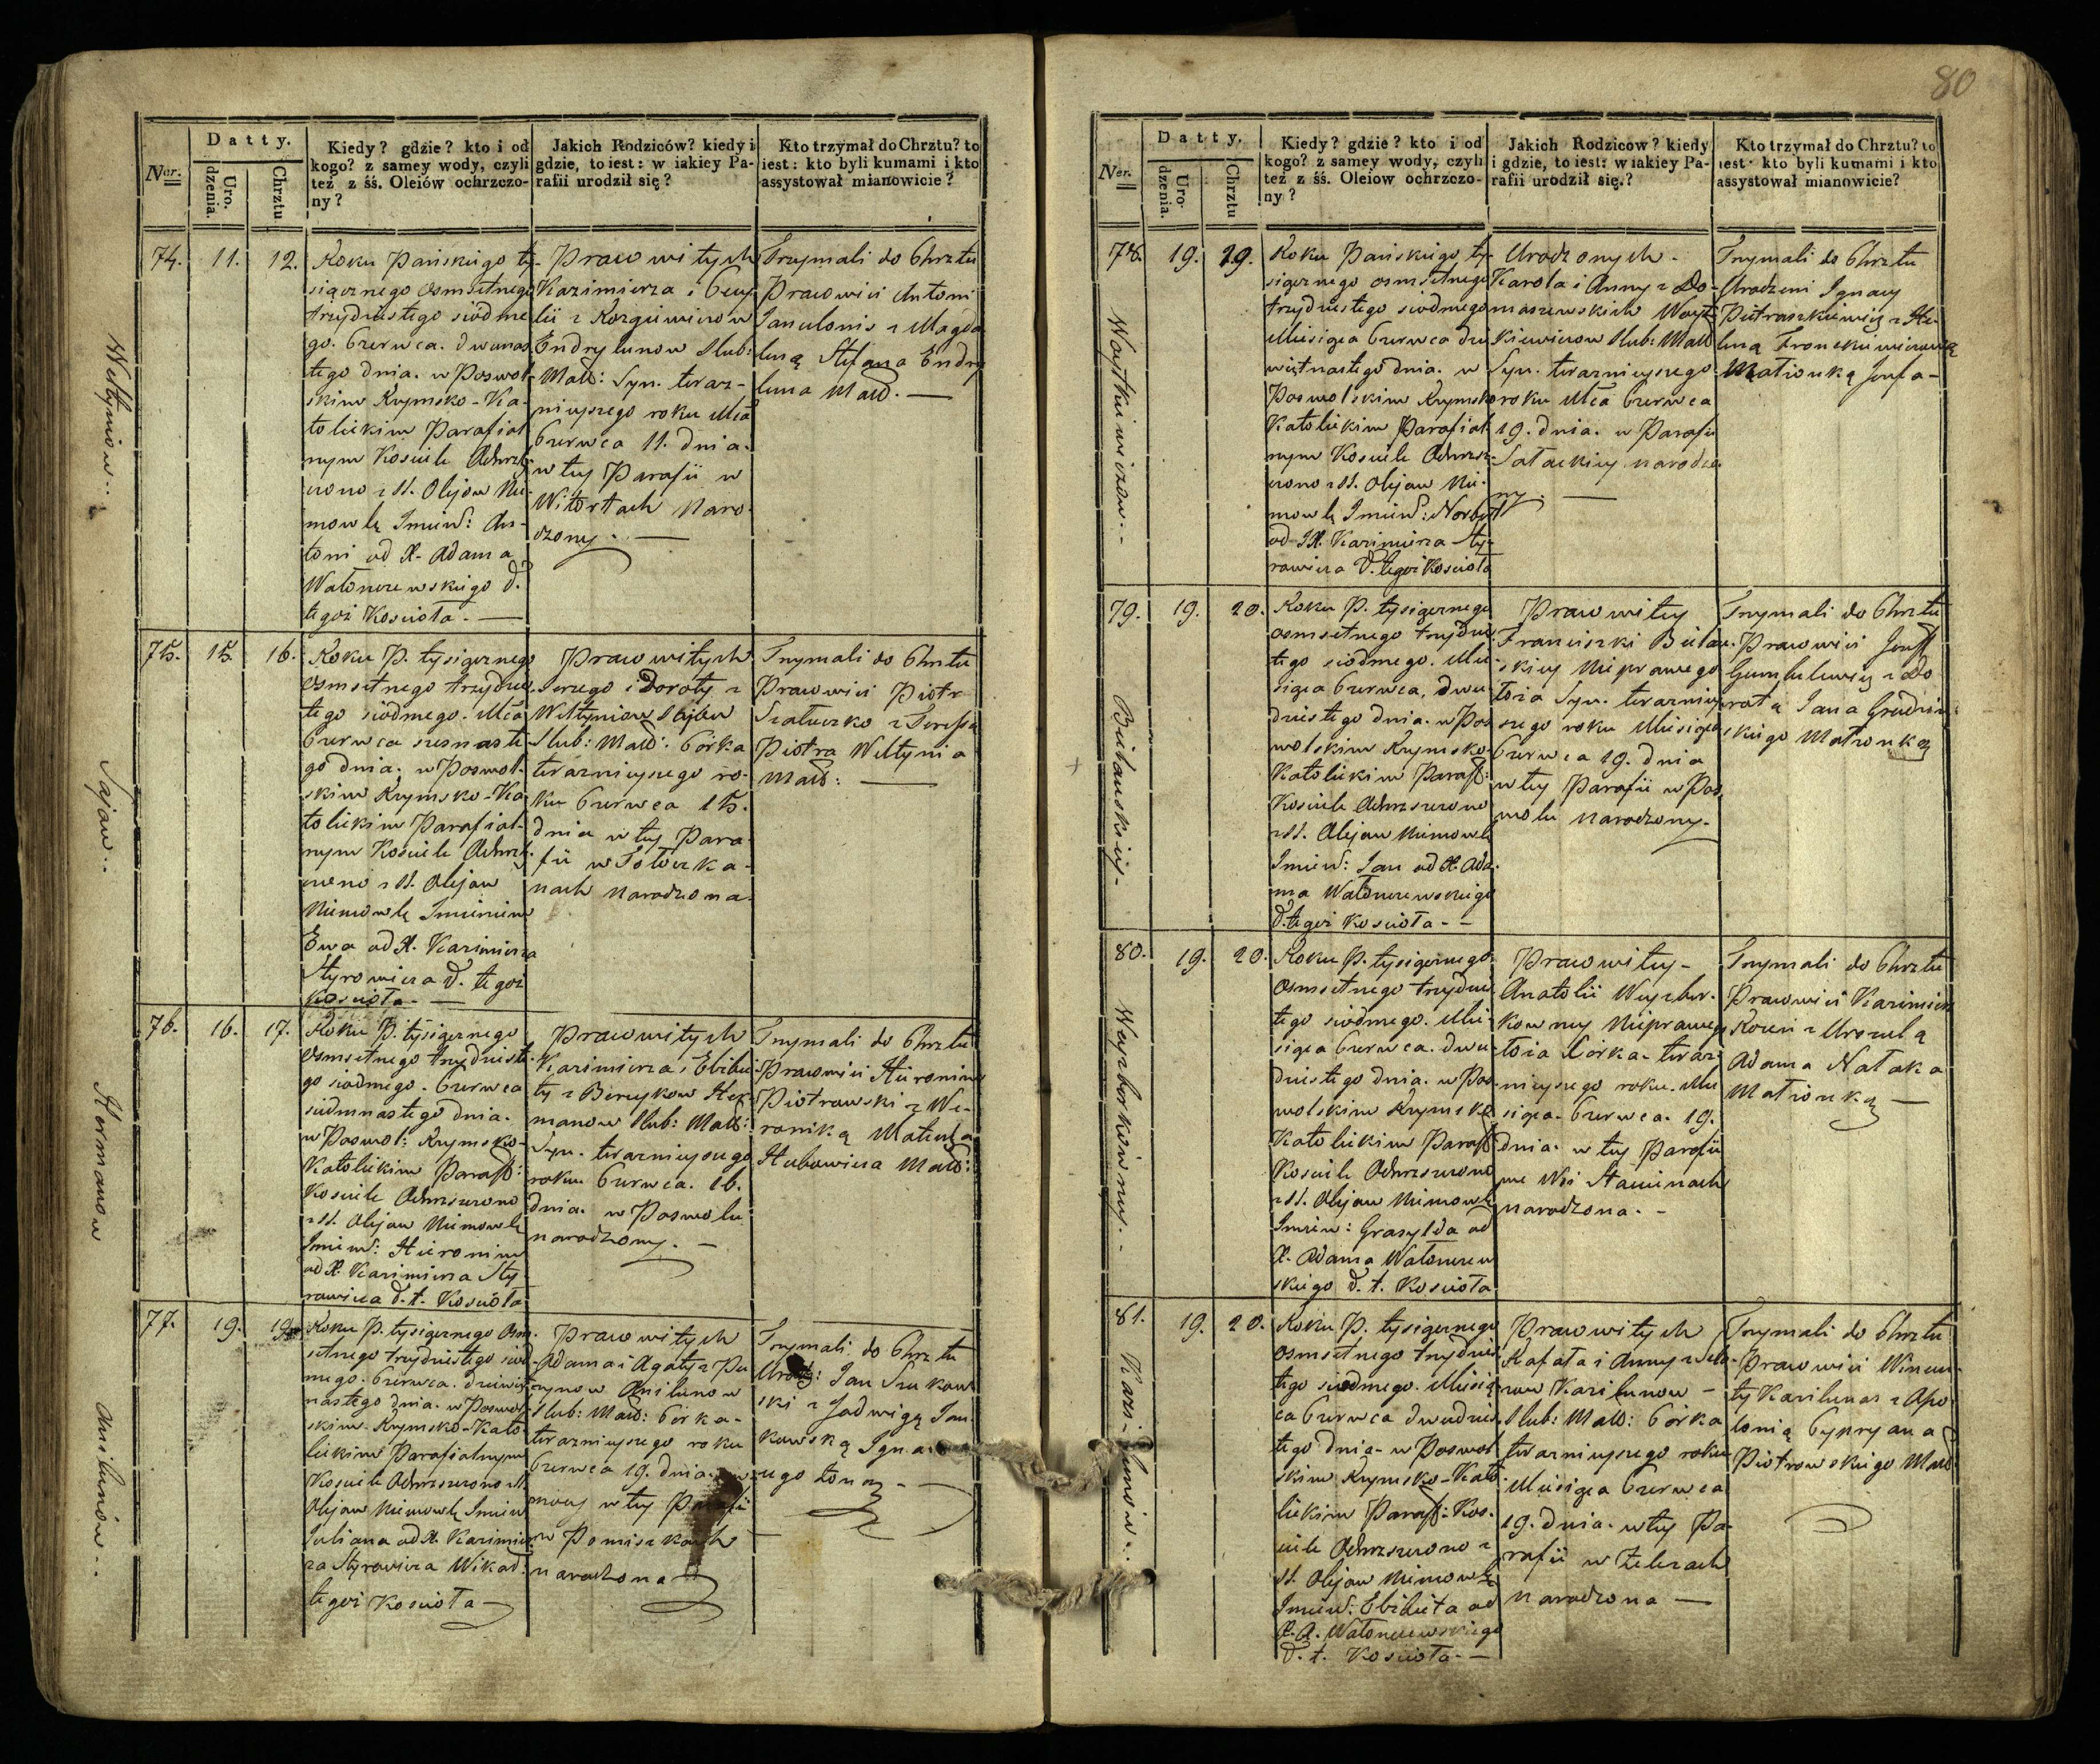 80
Ner.
Datty.
Uro-
dzenia.
Chrztu
Kiedy? gdzie? kto i od
kogo? z samey wody, czyli
też z śś. Oleiów ochrzczo-
ny?
Jakich Rodziców? kiedy i
gdzie, to iest: w iakiey Pa-
rafii urodził się?
Kto trzymał do Chrztu? to
iest: kto byli kumami i kto
assystował mianowicie?
74.
11.
12.
Roku Pańskiego ty-
siącznego osmsetnego
trzydziestego siódme
go. Czerwca. dwunas
tego dnia. w Poswol-
skim Rzymsko-Ka-
tolickim Parafial
nym Kosciele Ochrzcz
czono z SS. Olejow Nie-
mowlę Imieū: An-
toni od X. Adama
Wałonczewskiego d.
tegoż Koscioła. —
Prawowitych
Kazimierza i Cecy
lii z
Endrylunow Slub:
Małż: Syn. teraz-
nieyszego roku Mca
Czerwca 11. dnia.
w tey Parafii w
Witortach Naro-
dzony. —
Trzymali do Chrztu
Prawowici Antoni
Janulonis z Magda
leną Stefana Endry
luna Małż. —
75.
15.
16.
Roku P. tysiącznego
Osmsetnego trzydzies
tego siódmego. Mca
Czerwca szesnaste
go dnia. w Poswol-
skim Rzymsko-Ka-
tolickim Parafial-
nym Kosciele Ochrzcz
czono z SS. Olejow
Niemowlę Imieniem
Ewa od X. Kazimierza
Styrowicza d. tegoż
Kosciola. —
Prawowitych
Jerzego i Doroty z
Weltyniow
Slub: Małż: Córka
teraznieyszego ro-
ku Czerwca 15.
dnia w tey Para-
fii w
nach Narodzona.
Trzymali do Chrztu
Prawowici Piotr
Szałuczko z Teressą
Piotra Weltynia
Małż: —
76.
16.
17.
Roku P. tysiącznego
Osmsetnego trzydzieste
go siodmego. Czerwca
siedmnastego dnia.
w Poswol: Rzymsko-
Katolickim Paraff:
Kosciele Ochrzczono
z SS. Olejow Niemowlę
Imieū: Hieronim
od X. Kazimierza Sty
rowicza d. t. Kosciola
Prawowitych
Kazimierza i Elżbie
ty z Herk
manow Slub: Małż:
Syn. terazniejszego
roku Czerwca. 16.
dnia. w Poswolu
narodzony. —
Trzymali do Chrztu
Prawowici Hieronim
Piotrowski z We-
roniką Mateusza
Małż:
77.
19.
19
Roku P. tysiącznego Osm-
setnego trzydziestego siód
mego. Czerwca. dziewięt
nastego dnia. w Poswol-
skim. Rzymsko-Kato-
lickim Parafialnym
Kosciele Ochrzczono SS
Olejow Niemowlę Imiew
Juliana od X. Kazimier
za Styrowicza Wikar.
tegoż Kosciola
Prawowitych
Adama i Agaty z
Anilunow
Slub: Małż: Córka-
terazniejszego roku
Czerwca 19. dnia. w
nocy w tey Parafii
w Pomiszkach
narodzona
Trzymali do Chrztu
Urodz: Jan
ski z Jadwigą Jan
kowską Igna-
cego żoną. —
Weltyniow.
Hermanow
Anilunow.
Ner.
Datty.
Uro-
dzenia.
Chrztu
Kiedy? gdzie? kto i od
kogo? z samey wody, czyli
też z śś. Oleiow ochrzczo-
ny?
Jakich Rodzicow? kiedy
i gdzie, to iest: w iakiey Pa-
rafii urodził się.?
Kto trzymał do Chrztu? to
iest: kto byli kumami i kto
assystował mianowicie?
78.
19.
19.
Roku Pańskiego ty-
siącznego osmsetnego
trzydziestego siodmego
Miesiąca Czerwca dzie
więtnastego dnia. w
Poswolskim Rzymsko
Katolickim Parafial
nym Kosciele Ochrzcz-
czono z SS. Olejow Nie-
mowlę Imieū: Norbert
od JX. Kazimierza Sty-
rowicza d. tegoż Kosciola
Urodzonych.
Karola i Anny z Do-
maszewskich Woyt-
kiewiczow Slub: Małż
Syn. terazniejszego
roku Mca Czerwca
19. dnia. w Parafii
Sałackiey narodzo
ny. —
Trzymali do Chrztu
Urodzeni Ignacy
Pietraszkiewicz z He-
leną
Małżonką Jozefa-
79.
19.
20.
Roku P. tysiącznego
osmsetnego trzydzies
tego siódmego. Mie-
siąca Czerwca, dwu
dziestego dnia. w Pos
wolskim Rzymsko-
Katolickim Paraff:
Kosciele Ochrzczono
z SS. Olejow Niemowlę
Imieū: Jan od X. Ada-
ma Wałonczewskiego
d. tegoż Kosciola. -
Prawowitey
Franciszki Bielaw-
skiey Nieprawego
łoża Syn. terazniey
szego roku Miesiąca
Czerwca 19. dnia
w tey Parafii w Pos
wolu narodzony.
Trzymali do Chrztu
Prawowici Jozeff
Gumbulewicz z Do
rotą Jana
skiego Małżonką
80.
19.
20.
Roku P. tysiącznego
Osmsetnego trzydzies
tego siódmego. Mie-
siąca Czerwca. dwu
dziestego dnia. w Pos
wolskim Rzymsko
Katolickim Paraff
Kosciele Ochrzczono
z SS. Olejow Niemowlę
Imieū: Grasylda od
X. Adama Wałonczew
skiego d. t. Kosciola
Prawowitey-
Anatolii Weyzbor-
kowney Nieprawego
łoża Córka- teraz-
nieyszego roku. Mie
siąca. Czerwca. 19.
dnia. w tey Parafii
we Wsi Stacinach
narodzona. -
Trzymali do Chrztu
Prawowici Kazimierz
z Urszulą
Adama
Małżonką —
81.
19.
20.
Roku P. tysiącznego
Osmsetnego trzydzies
tego siodmego. Miesią
ca Czerwca dwudzies
tego dnia- w Poswol
skim Rzymsko-Kato
lickim Paraff: Kos-
ciele Ochrzczono z
SS. Olejow Niemowlę
Imieū: Elżbieta od
X. A. Wałonczewskiego
d. t. Kosciola. —
Prawowitych
Rafała i Anny z
Karilunow —
Slub: Małż: Córka
terazniejszego roku
Miesiąca Czerwca
19. dnia. w tey Pa-
rafii w Żelzach
Narodzona —
Trzymali do Chrztu
Prawowici Wincen-
ty Karilunas z Apo
lonią Cypryana
Piotrowskiego Małż
Woytkiewiczow.-
Bielawskiey-
Weyzborkowney.-
Karilunow.